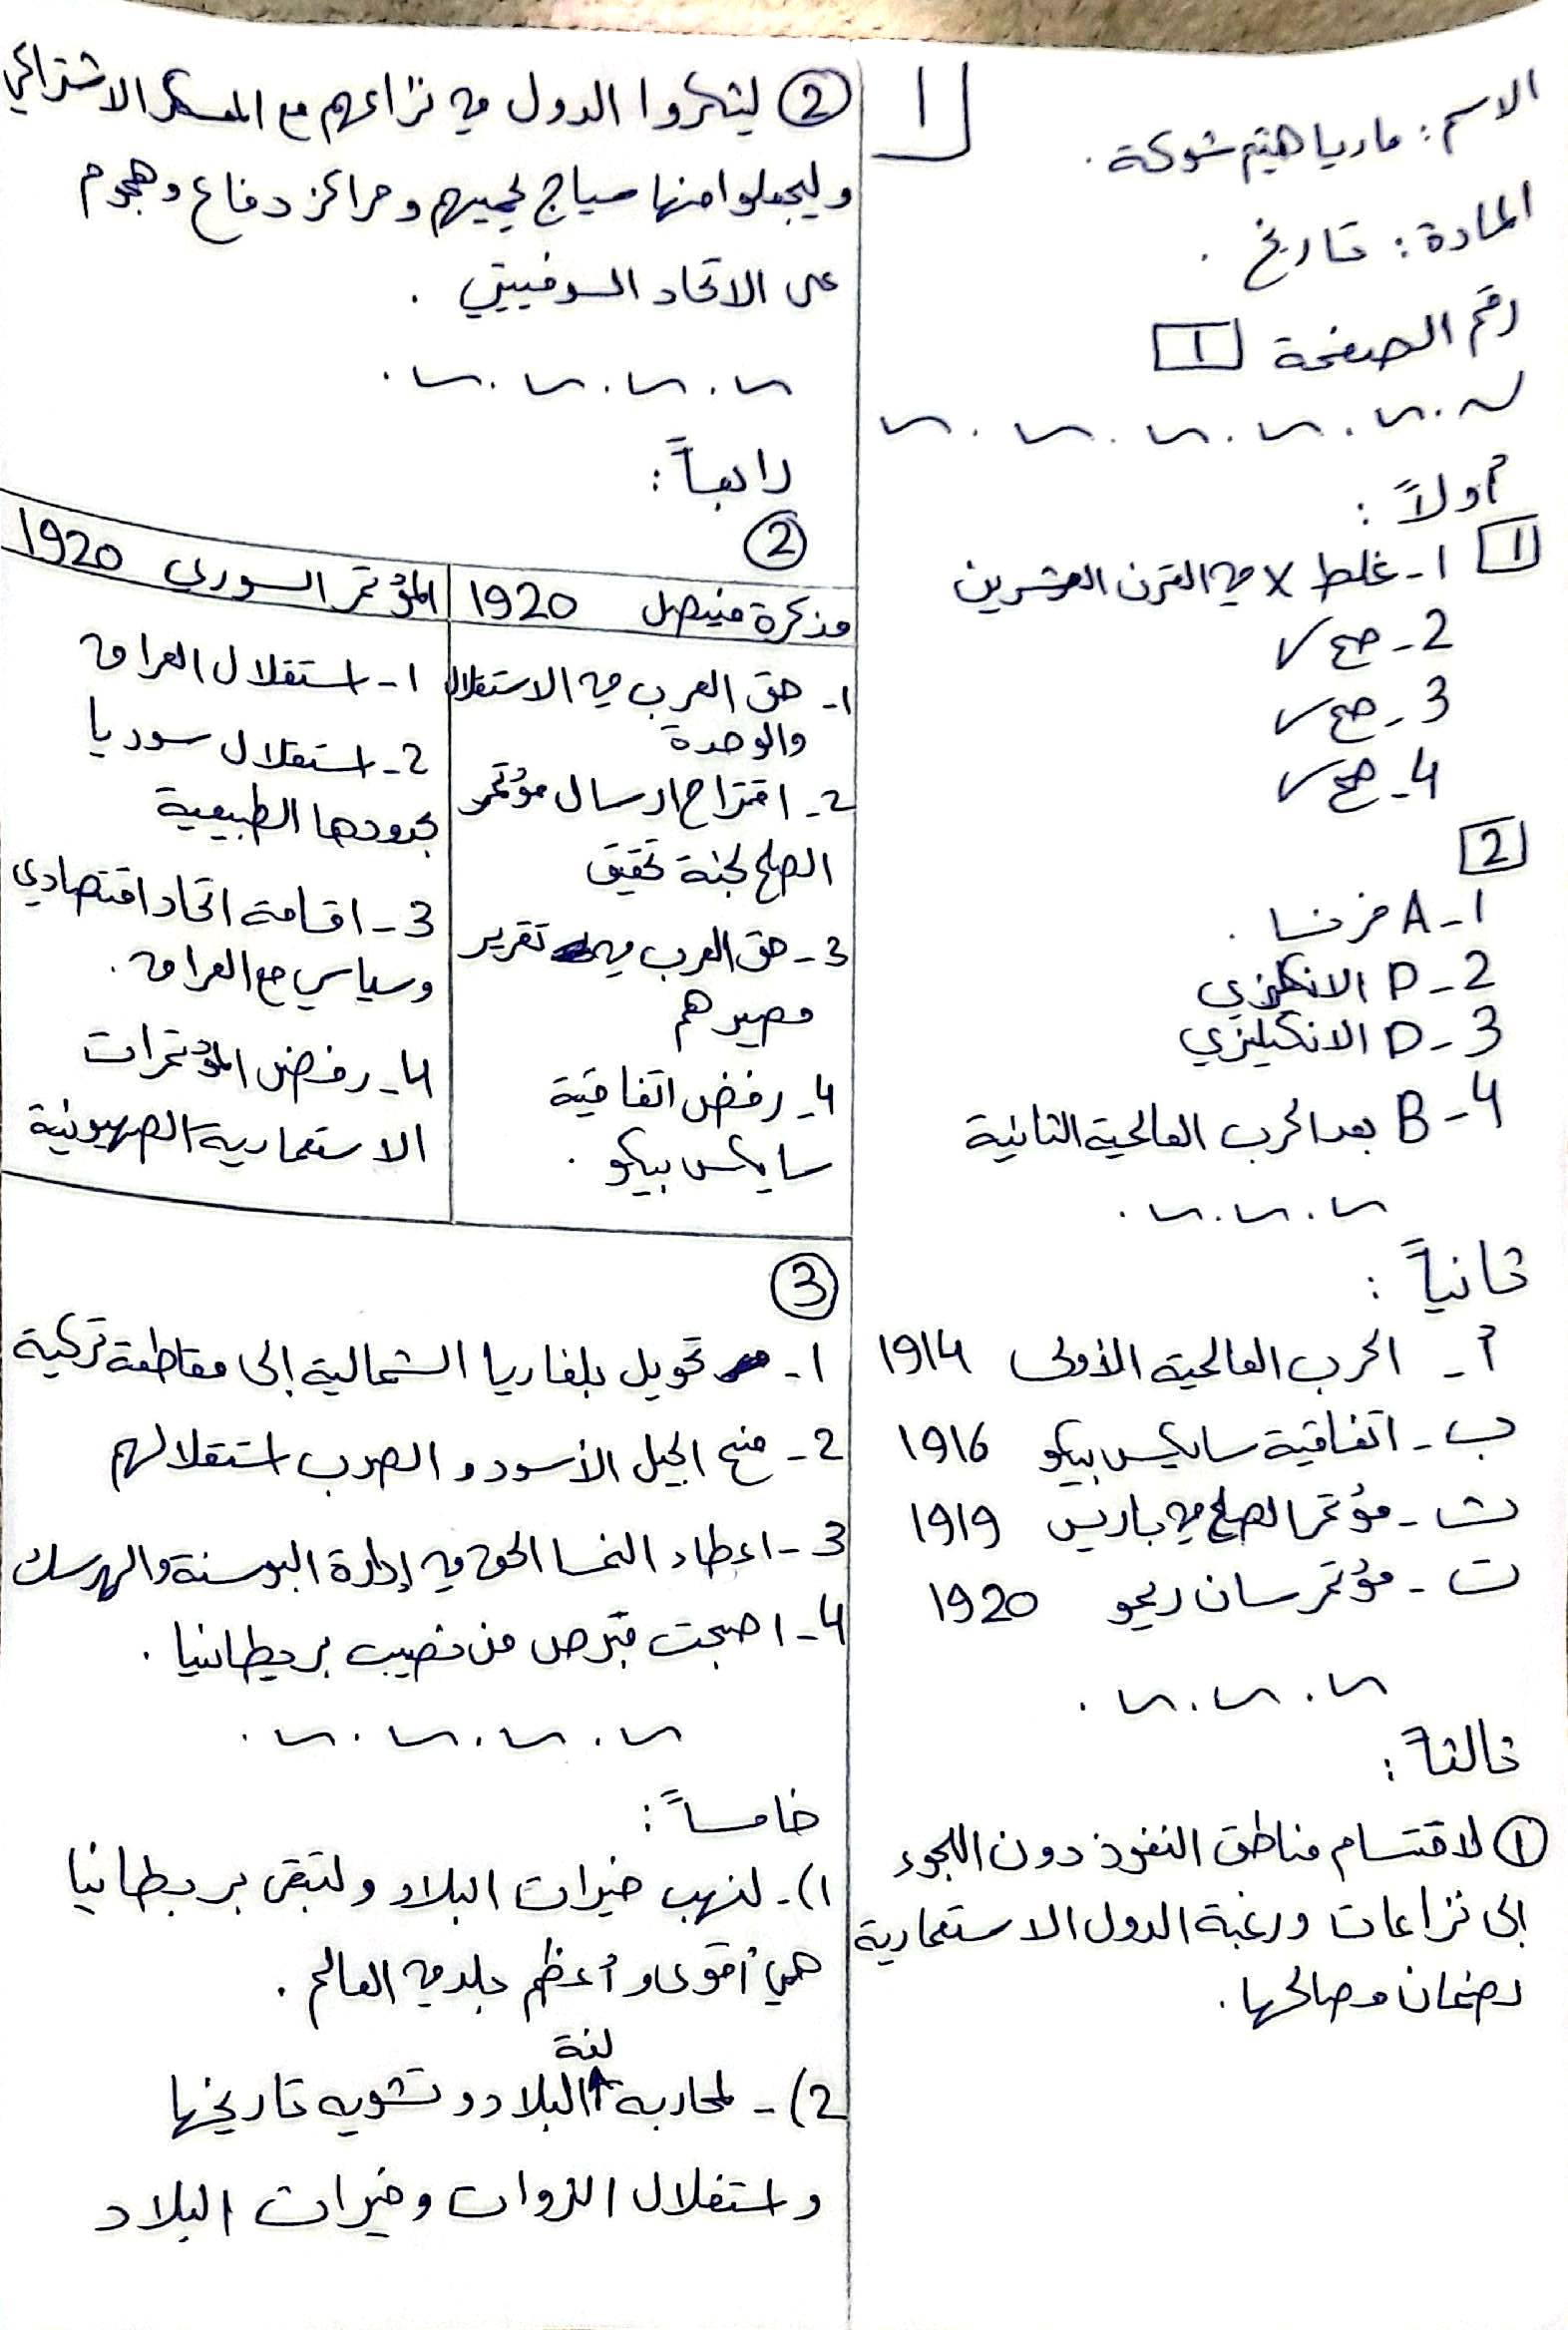 الاسم: ماريا هيثم شوكة.
المادة: تاريخ.
رقم الصفحة 1
1
أولاً:
1
1- غلط x في القرن العشرين
2- صح ✓
3- صح ✓
4- صح ✓
2
1- A فرنسا.
2- D الانكليزي
3- D الانكيليزي
4- B بعد الحرب العالمية الثانية
ثانياً:
أ- الحرب العالمية الأولى 1914
ب- اتفاقية سايكس بيكو 1916
ث- مؤتمر الصلح في باريس 1919
ت- مؤتمر سان ريمو 1920
ثالثاً:
① لاقتسام مناطق النفوذ دون اللجوء
إلى نزاعات ورغبة الدول الاستعمارية
بضمان مصالحها.
② ليشكروا الدول في نزاعهم مع المعسكر الاشتراكي
وليجعلوا منها سياج لحميهم ومراكز دفاع وهجوم
على الاتحاد السوفييتي.
رابعاً:
②
مذكرة فيصل 1920
1- حق العرب في الاستقلال
والوحدة
2- اقتراح ارسال مؤتمر
الصلح لجنة تحقيق
3- حق العرب في تقرير
مصيرهم
4- رفض اتفاقية
سايكس بيكو.
المؤتمر السوري 1920
1- استقلال العراق
2- استقلال سوريا
بحدودها الطبيعية
3- اقامة اتحاد اقتصادي
وسياسي مع العراق.
4- رفض المؤتمرات
الاستعمارية الصهيونية
③
1- تحويل بلغاريا الشمالية إلى مقاطعة تركية
2- منح الجبل الأسود و الصرب استقلالهم
3- اعطاء النمسا الحق في إدارة البوسنة والهرسك
4- اصبحت قبرص من نصيب بريطانيا.
خامساً:
1)- لنهب خيرات البلاد ولتبقى بريطانيا
هي أقوى و أعظم بلد في العالم.
2)- لمحاربه لغة البلاد و تشويه تاريخها
واستغلال الثروات وخيرات البلاد